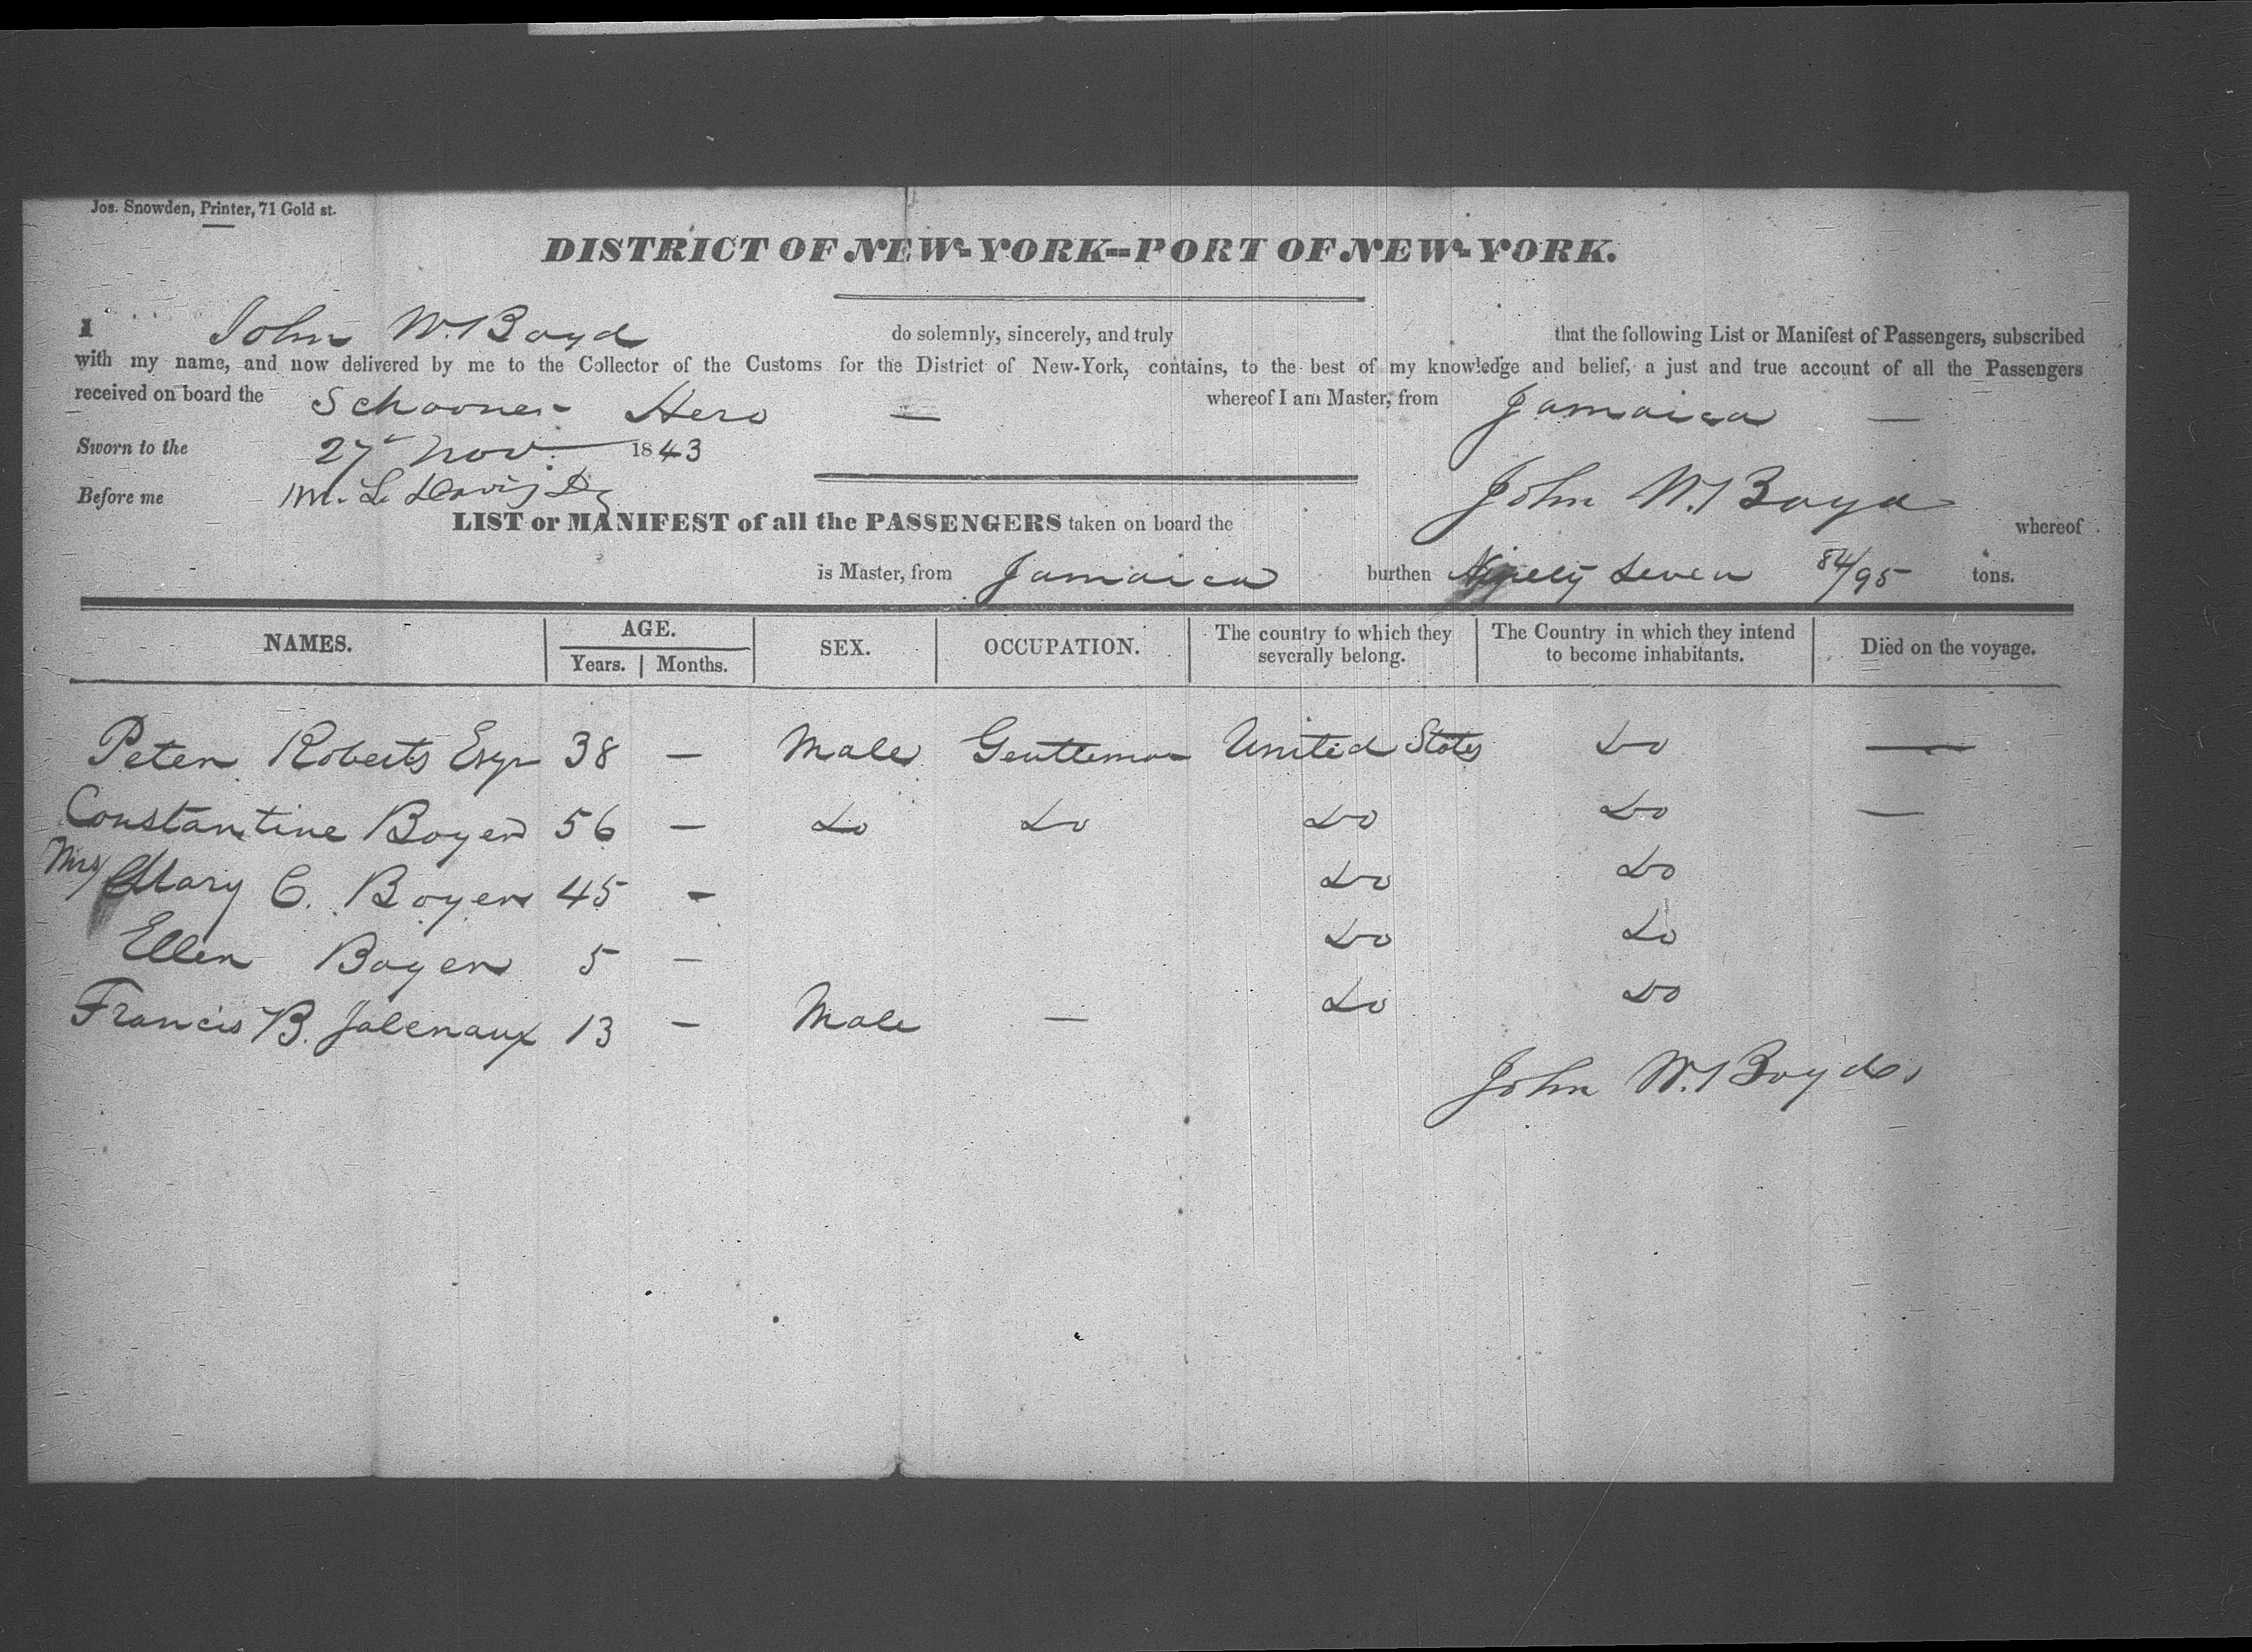 Jos. Snowden, Printer, 71 Gold st.
DISTRICT OF NEW-YORK--PORT OF NEW-YORK.
I John W. Boyd do solemnly, sincerely, and truly that the following List or Manifest of Passengers, subscribed
with my name, and now delivered by me to the Collector of the Customs for the District of New-York, contains, to the best of my knowledge and belief, a just and true account of all the Passengers
received on board the Schooner Hero — whereof I am Master, from Jamaica —
Sworn to the 27 Nov. 1843
Before me M. L. Davis
LIST or MANIFEST of all the PASSENGERS taken on board the John W. Boyd whereof
is Master, from Jamaica burthen Ninety Seven 84/95 tons.
NAMES. AGE. Years. Months. SEX. OCCUPATION. The country to which they severally belong. The Country in which they intend to become inhabitants. Died on the voyage.
Peter Roberts Esqr 38 — Male Gentleman United States Do —
Constantine Boyer 56 — Do Do Do Do —
Mrs Mary C. Boyer 45 - Do Do
Ellen Boyer 5 — Do Do
Francis B. 13 — Male — Do Do
John W. Boyd